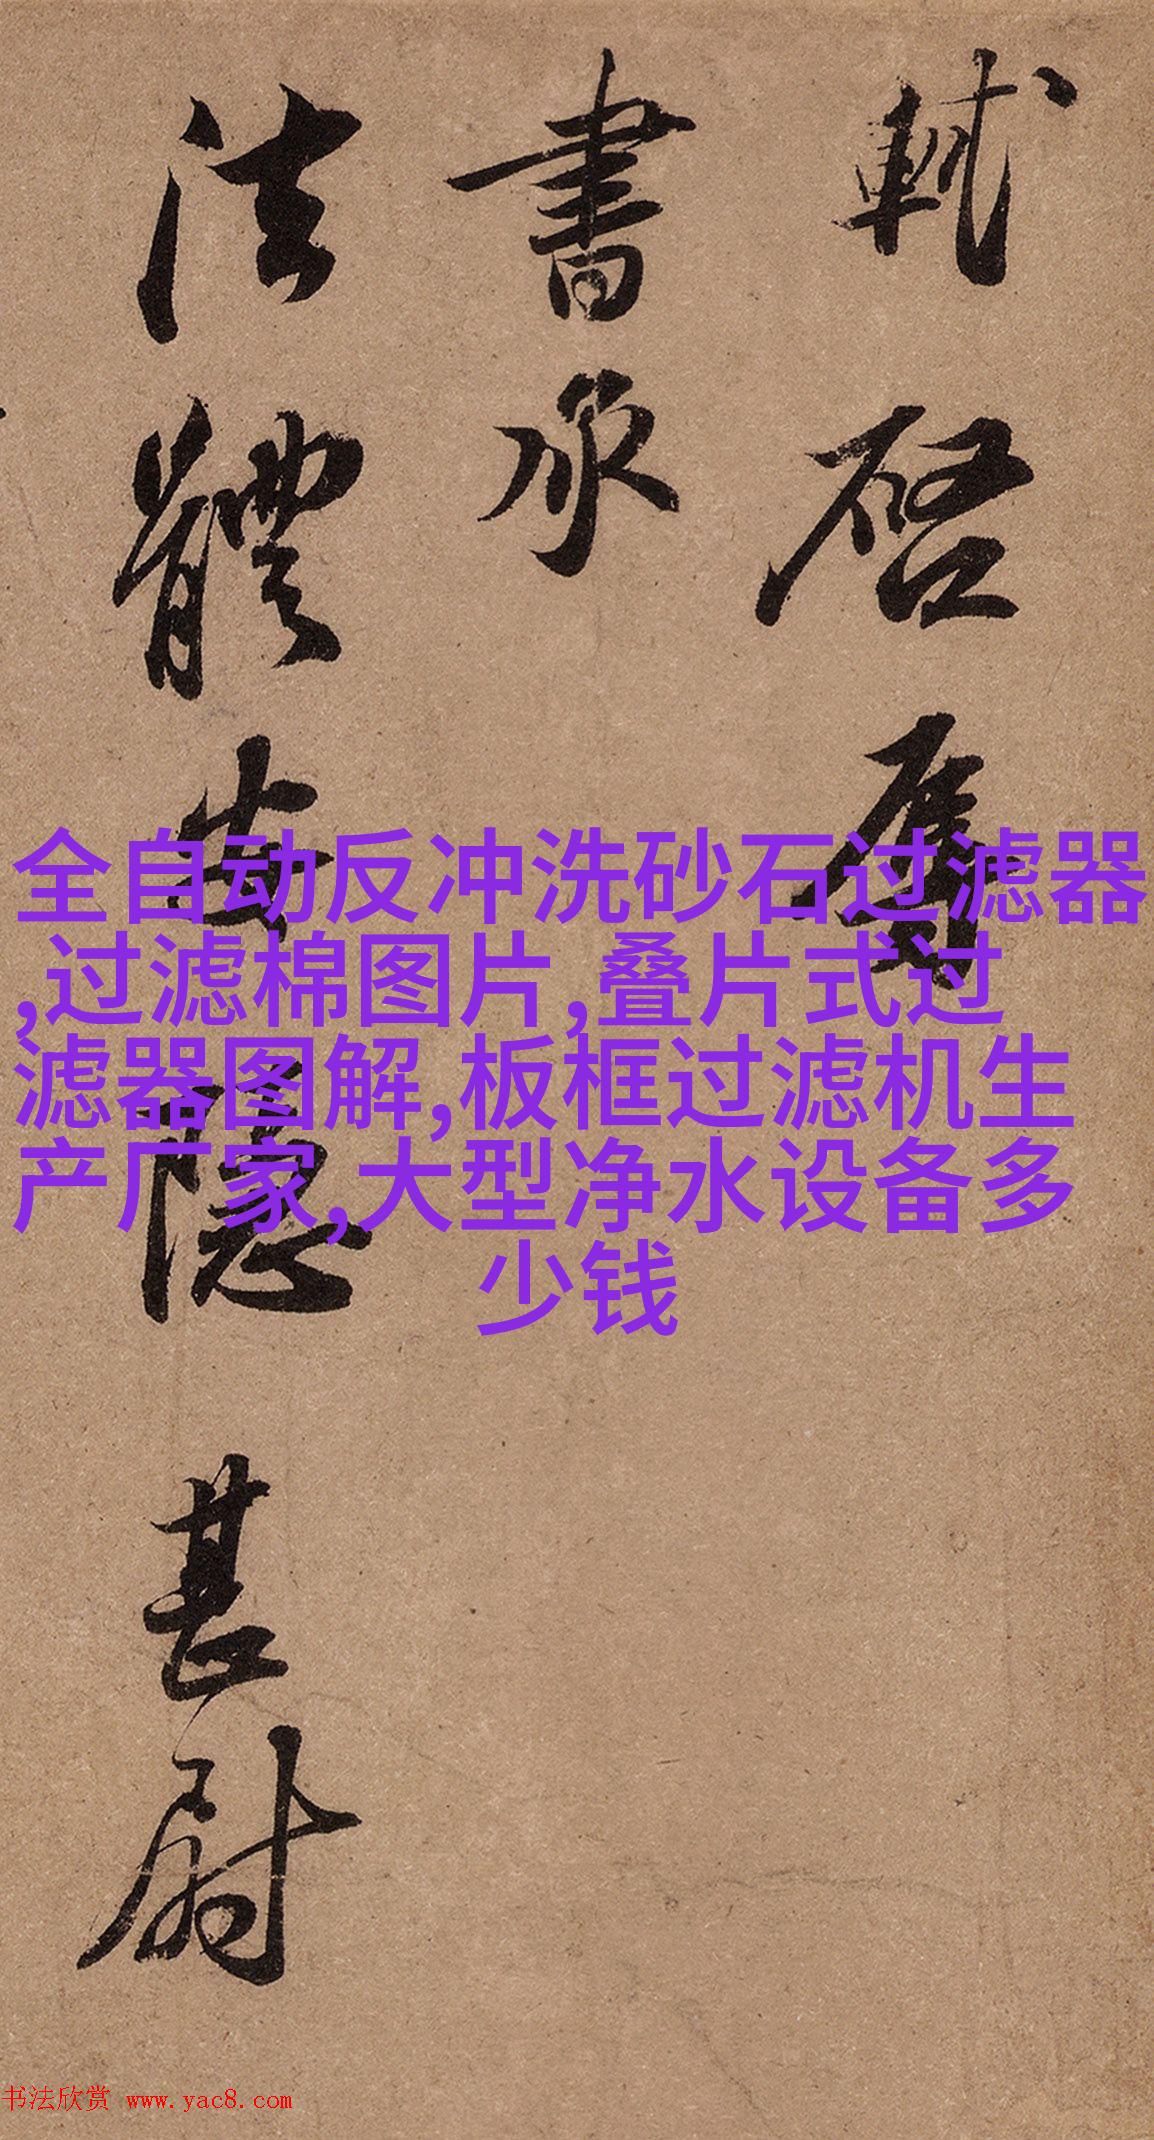 軾啓辱
書承
法體安隱甚尉
全自动反冲洗砂石过滤器
,过滤棉图片,叠片式过
滤器图解,板框过滤机生
产厂家,大型净水设备多
少钱
书法欣赏 www.yac8.com